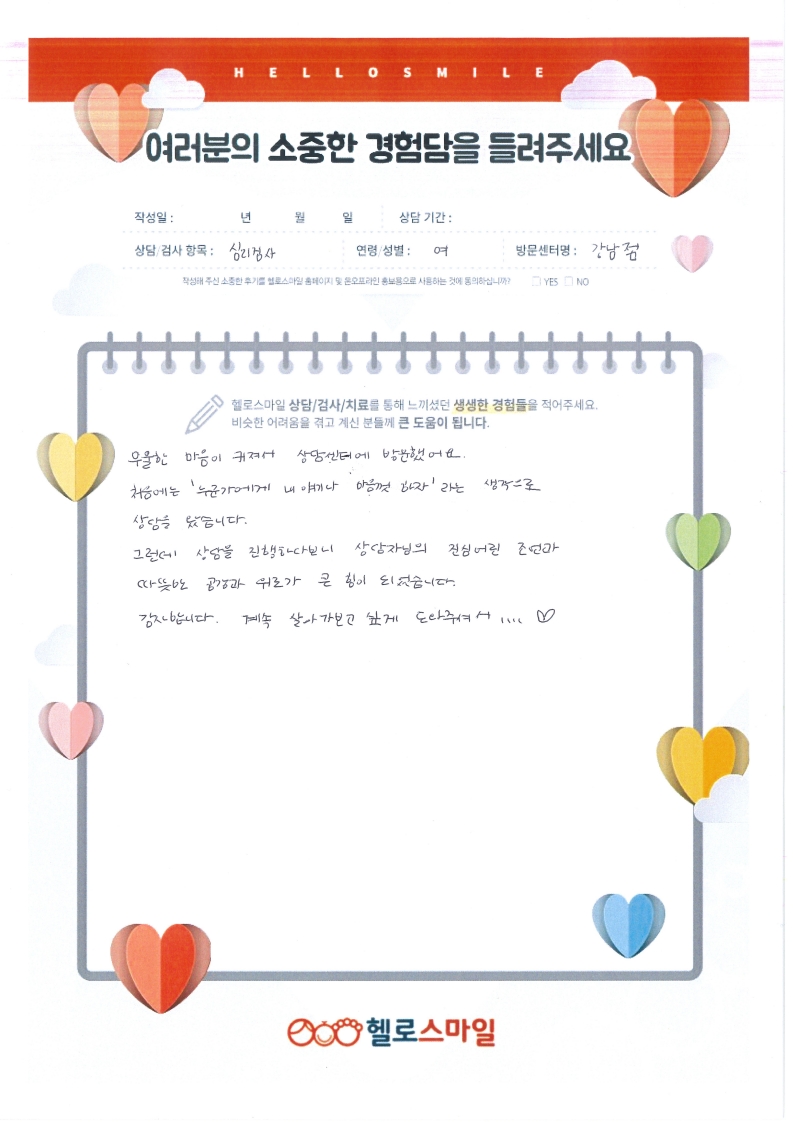 HELLOSMILE
여러분의 소중한 경험담을 들려주세요
작성일 : 년 월 일 상담 기간 :
상담/검사 항목 : 심리검사 연령/성별 : 여 방문센터명 : 강남점
작성해 주신 소중한 후기를 헬로스마일 홈페이지 및 온오프라인 홍보용으로 사용하는 것에 동의하십니까? YES NO
헬로스마일 상담/검사/치료를 통해 느끼셨던 생생한 경험들을 적어주세요.
비슷한 어려움을 겪고 계신 분들께 큰 도움이 됩니다.
우울한 마음이 커져서 상담센터에 방문했어요.
처음에는 '누군가에게 내 얘기나 마음껏 하자' 라는 생각으로
상담을 왔습니다.
그런데 상담을 진행하다보니 상담자님의 진심어린 조언과
따뜻한 공감과 위로가 큰 힘이 되었습니다.
감사합니다. 계속 살아가보고 싶게 도와주셔서 .... ♡
헬로스마일